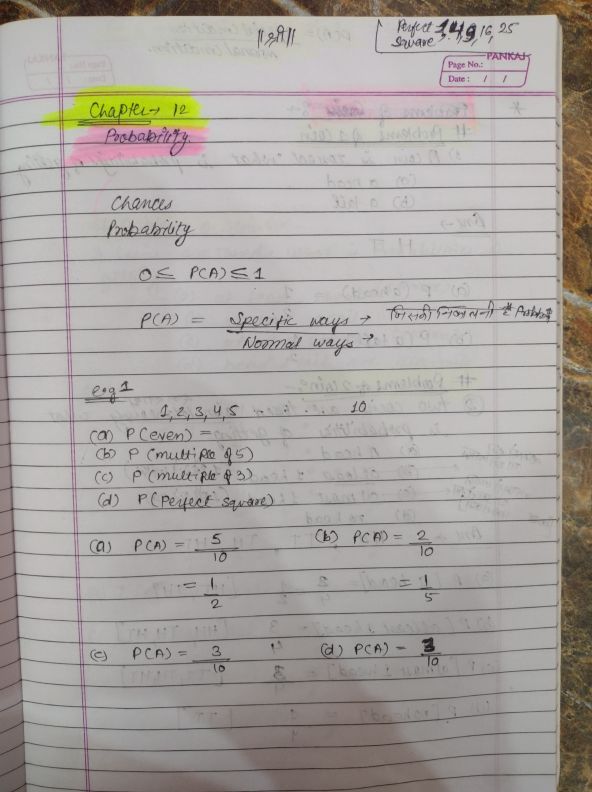 ||श्री||
Perfect 1, 4, 9, 16, 25
Square
PANKAJ
Page No.:
Date : / /
Chapter → 12
Probability.
Chances
Probability
0 ≤ P(A) ≤ 1
P(A) = Specific ways → जिसकी निकालनी है
Normal ways →
e.g 1
1, 2, 3, 4, 5 . . . . 10
(a) P (even) =
(b) P (multiple of 5)
(c) P (multiple of 3)
(d) P (Perfect square)
(a) P(A) = 5/10 (b) P(A) = 2/10
= 1/2 = 1/5
(c) P(A) = 3/10 (d) P(A) = 3/10